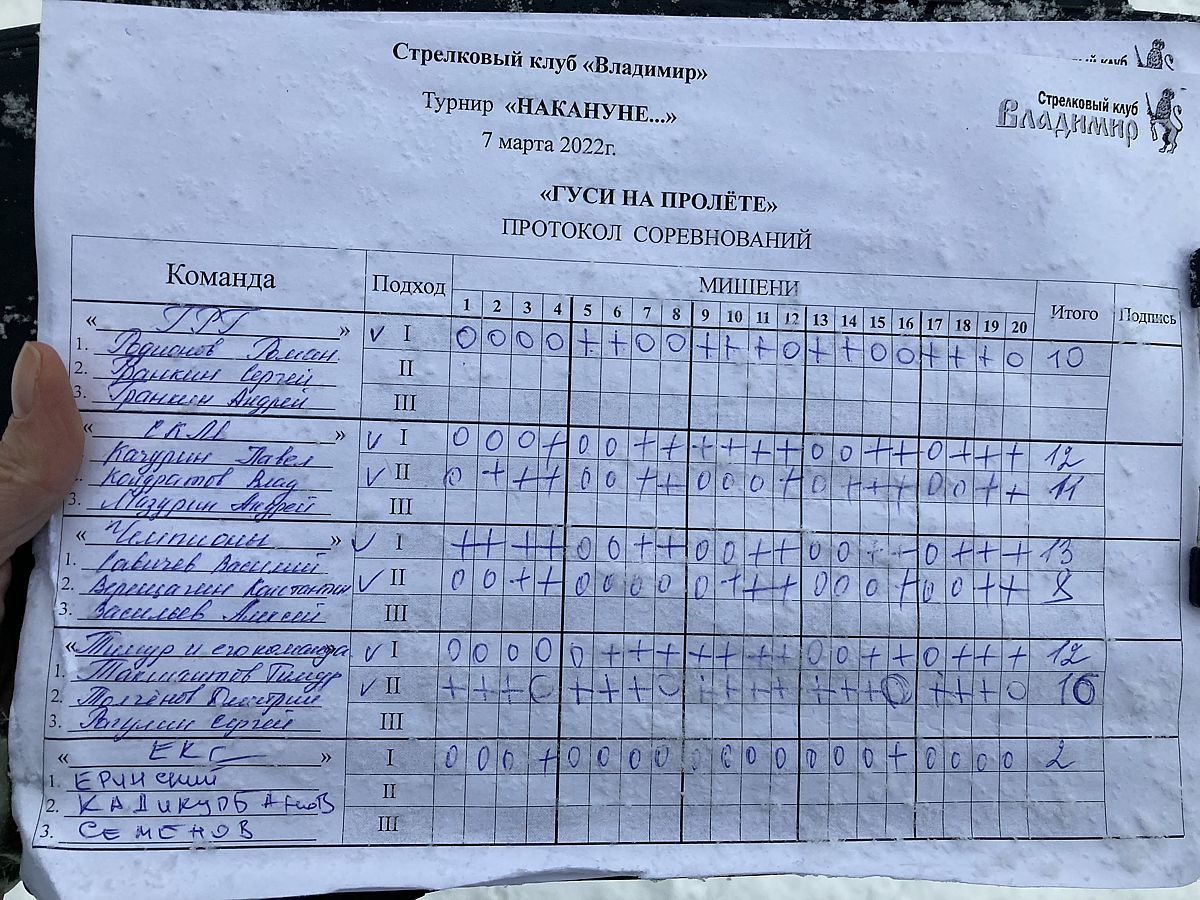 клуб
Стрелковый клуб «Владимир»
Стрелковый клуб
Владимир
Турнир «НАКАНУНЕ...»
7 марта 2022г.
«ГУСИ НА ПРОЛЁТЕ»
ПРОТОКОЛ СОРЕВНОВАНИЙ
Команда Подход МИШЕНИ Итого Подпись
1 2 3 4 5 6 7 8 9 10 11 12 13 14 15 16 17 18 19 20
« ГРГ » ✓ I 0 0 0 0 + + 0 0 + + + 0 + + 0 0 + + + 0 10
1. Родионов Роман
2. Ванкин Сергей II
3. Гранкин Андрей III
« » ✓ I 0 0 0 + 0 0 + + + + + + 0 0 + + 0 + + + 12
Качурин Павел
Кондратов Влад ✓ II 0 + + + 0 0 + + 0 0 0 + 0 + + + 0 0 + + 11
3. Мазурин Андрей III
« Чемпионы » ✓ I + + + + 0 0 + + 0 0 + + 0 0 + + 0 + + + 13
1. Савичев Василий
2. Верещагин Константин ✓ II 0 0 + + 0 0 0 0 0 + + + 0 0 0 + 0 0 + + 8
3. Васильев Алексей III
«Тимур и его команда ✓ I 0 0 0 0 0 + + + + + + + 0 0 + + 0 + + + 12
1. Тимур
2. Толчёнов Дмитрий ✓ II + + + 0 + + + 0 + + + + + + + 0 + + + 0 16
3. Рогулин Сергей III
« ЕКС » I 0 0 0 + 0 0 0 0 0 0 0 0 0 0 0 + 0 0 0 0 2
1. ЕРИНСКИЙ II
2. КАДИКУРБАНОВ
3. СЕМЕНОВ III